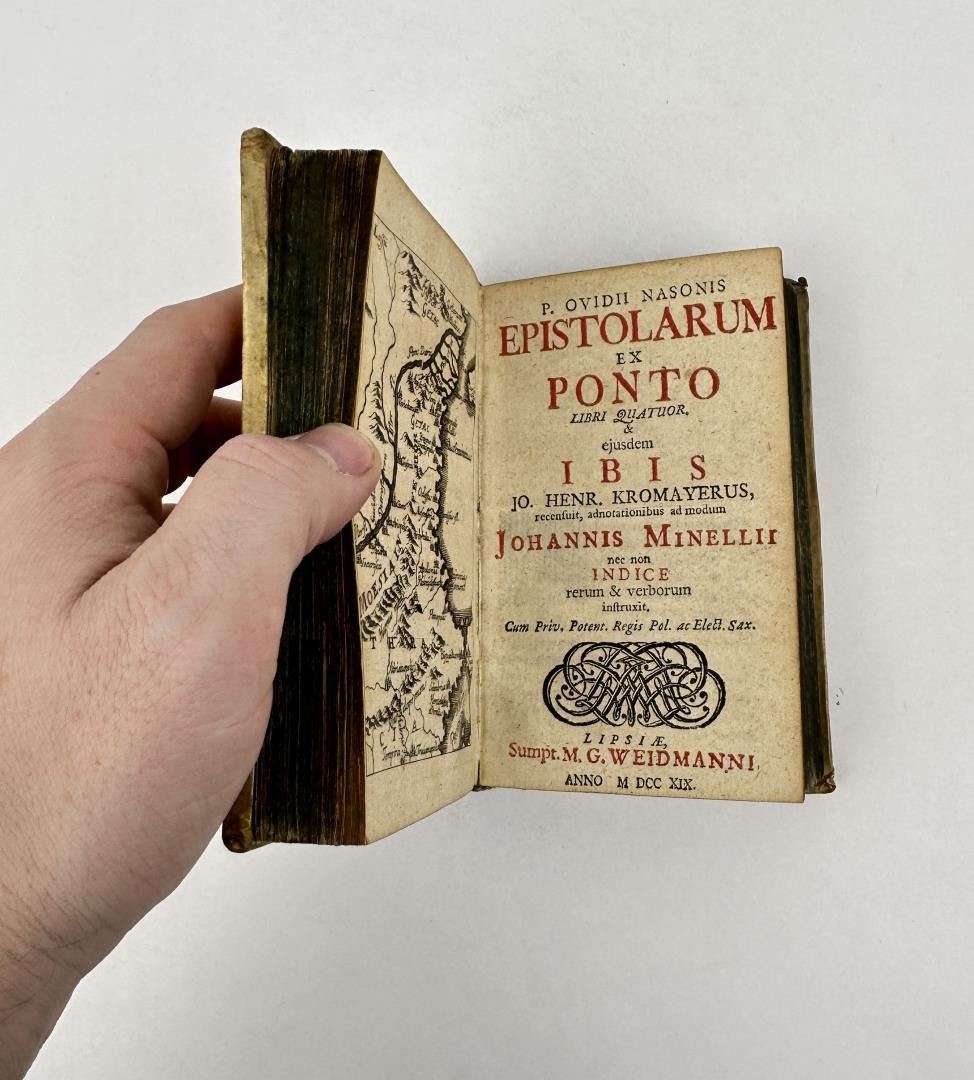 GETAE
GETAE
MOESIA
P. OVIDII NASONIS
EPISTOLARUM
EX
PONTO
LIBRI QUATUOR,
&
ejusdem
IBIS
JO. HENR. KROMAYERUS,
recenſuit, adnotationibus ad modum
JOHANNIS MINELLII
nec non
INDICE
rerum & verborum
inſtruxit.
Cum Priv. Potent. Regis Pol. ac Elect. Sax.
LIPSIÆ,
Sumpt. M. G. WEIDMANNI,
ANNO M DCC XIX.